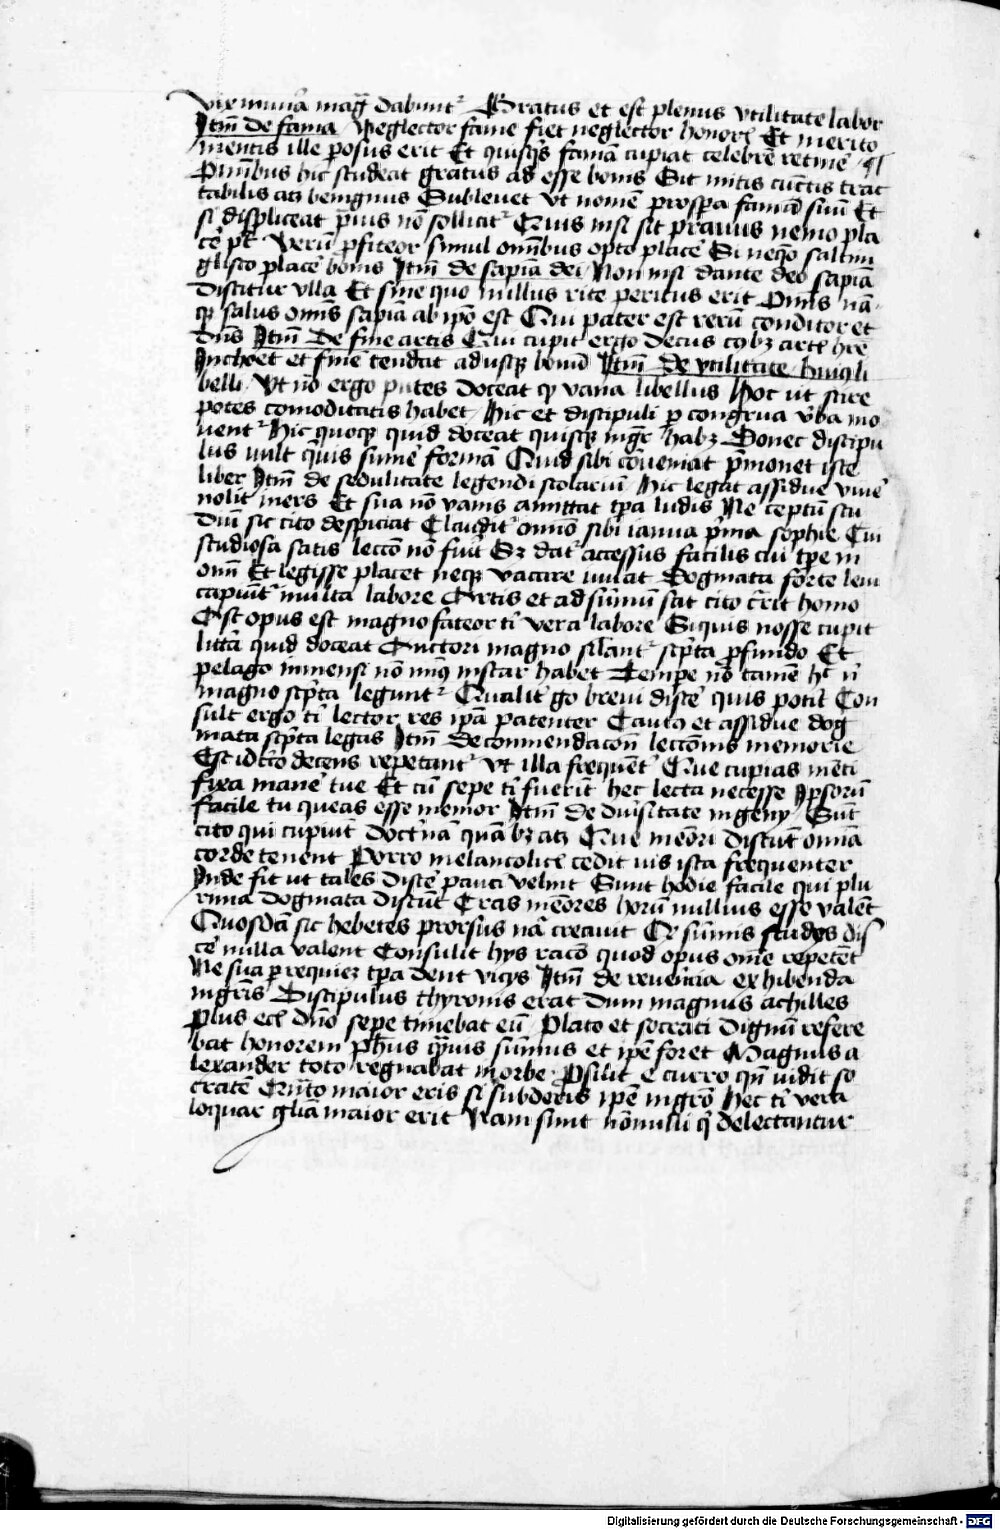 vix munia magr̄ dabunt᷑ Gratus et est plenus vtilitate labor
Itm̄ de fama Neglector fame fiet neglector honor̄ Et merito
mentis ille ꝑosus erit Et quisq̄s famā cupiat celebrē retinē
Omībus hic studeat gratus ad esse bonis Sit mitis cūctis trac
tabilis atq benignus Sublevet vt nomē prosꝑa fama suū Et
si displiceat pavis nō sollicit᷑ Quis nisi sit pravus nemo pla
cē pt̄ Verū ꝓfiteor simul omībus opto placē Si nequeo saltim
glisco placē bonis Itm̄ de sapiā dei Non nisi dante deo sapiā
discitur vlla Et sine quo nullus rite peritus erit Omīs nā
qꝫ salus omīs sapia ab ipō est Qui pater est rerū conditor et
dn̄s Itm̄ De fine artis Qui cupit ergo decus cuiqꝫ artis hr̄e
Inchoet et finē tendat ad usqꝫ bonū Itm̄ de vtilitate huiꝰ li
belli Vt nō ergo putes doceat qꝫ vana libellus Hoc ut scire
potes comoditatis habet Hic et discipuli ꝑ congrua v̄ba mo
vent᷑ Hic quoqꝫ quid doceat quisqꝫ mgr̄ habꝫ Donec discipu
lus vult q̄vis sumē formā Quid sibi cōveniat p̄monet iste
liber Itm̄ de sedulitate legendi scolariū Hic legat assidue vivē
nolit iners Et sua nō vanis amittat tꝑa ludis Ne ceptū stu
diū sic cito despiciat Claudit᷑ omīo sibi ianua p̄ma sophie Cui
studiosa satis lecc̄o nō fuit Sꝫ dat᷑ accessus facilis cui tꝑe in
omī Et legisse placet neqꝫ vacare iuvat Dogmata forte leui
capiūt᷑ multa labore Artis et ad sūmū sat cito c̄rit homo
Est opus est magno fateor tī vera labore Siquis nosse cupit
litt̄a quid doceat Auctori magno silant᷑ sc̄pta ꝓfundo Et
pelago inmensi nō minꝰ instar habet Tempe nō tamē h̄t ī
magno sc̄pta legunt᷑ Qualit᷑ go brevi discē quis potit Con
sult ergo tī lector res ipā patenter Cautꝰ et assidue dog
mata sc̄pta legas Itm̄ de conmendac̄on leccōnis memorie
Est id circo decens repetant᷑ vt illa frequēt᷑ Que cupias mēti
fixa manē tue Et cū sepe tī fuerīt hec lecta necesse Ipsorū
facile tu queas esse memor Itm̄ de div̄sitate ingenij Sūt
cito qui cupiūt doct̄nā quābꝫ atqꝫ Que memōri discūt omīa
corde tenent Porro melancolic̄ cedit vis ista frequenter
Inde fit ut tales discē pauci velint Sunt hodie facile qui plu
rima dogmata discūt Cras memōres horū nullius esse valēt
Quosdā sic hebetes prorsus nā creavit Cr̄ sūmis studes dis
cē nulla valent Consulit hys racō quod opus om̄e repetēt
Ne sua ꝑ requiez tꝑa dent vicys Itm̄ de reverēcia exhibenda
mgr̄is Discipulus chyronis erat dum magnus achilles
Plus ecī dn̄o sepe timebat eū Plato et socrati dignū refere
bat honorem Ph̄us q̄vis sūmus et ipē foret Magnus a
lexander toto regnabat in orbe Psilit e curro qn̄ vidit so
cratē Qn̄to maior eris si subderis ipē mgrō Hec tī vera
loquar glīa maior erit Nam sunt nōnulli q̄ delectantur
Digitalisierung gefördert durch die Deutsche Forschungsgemeinschaft - DFG